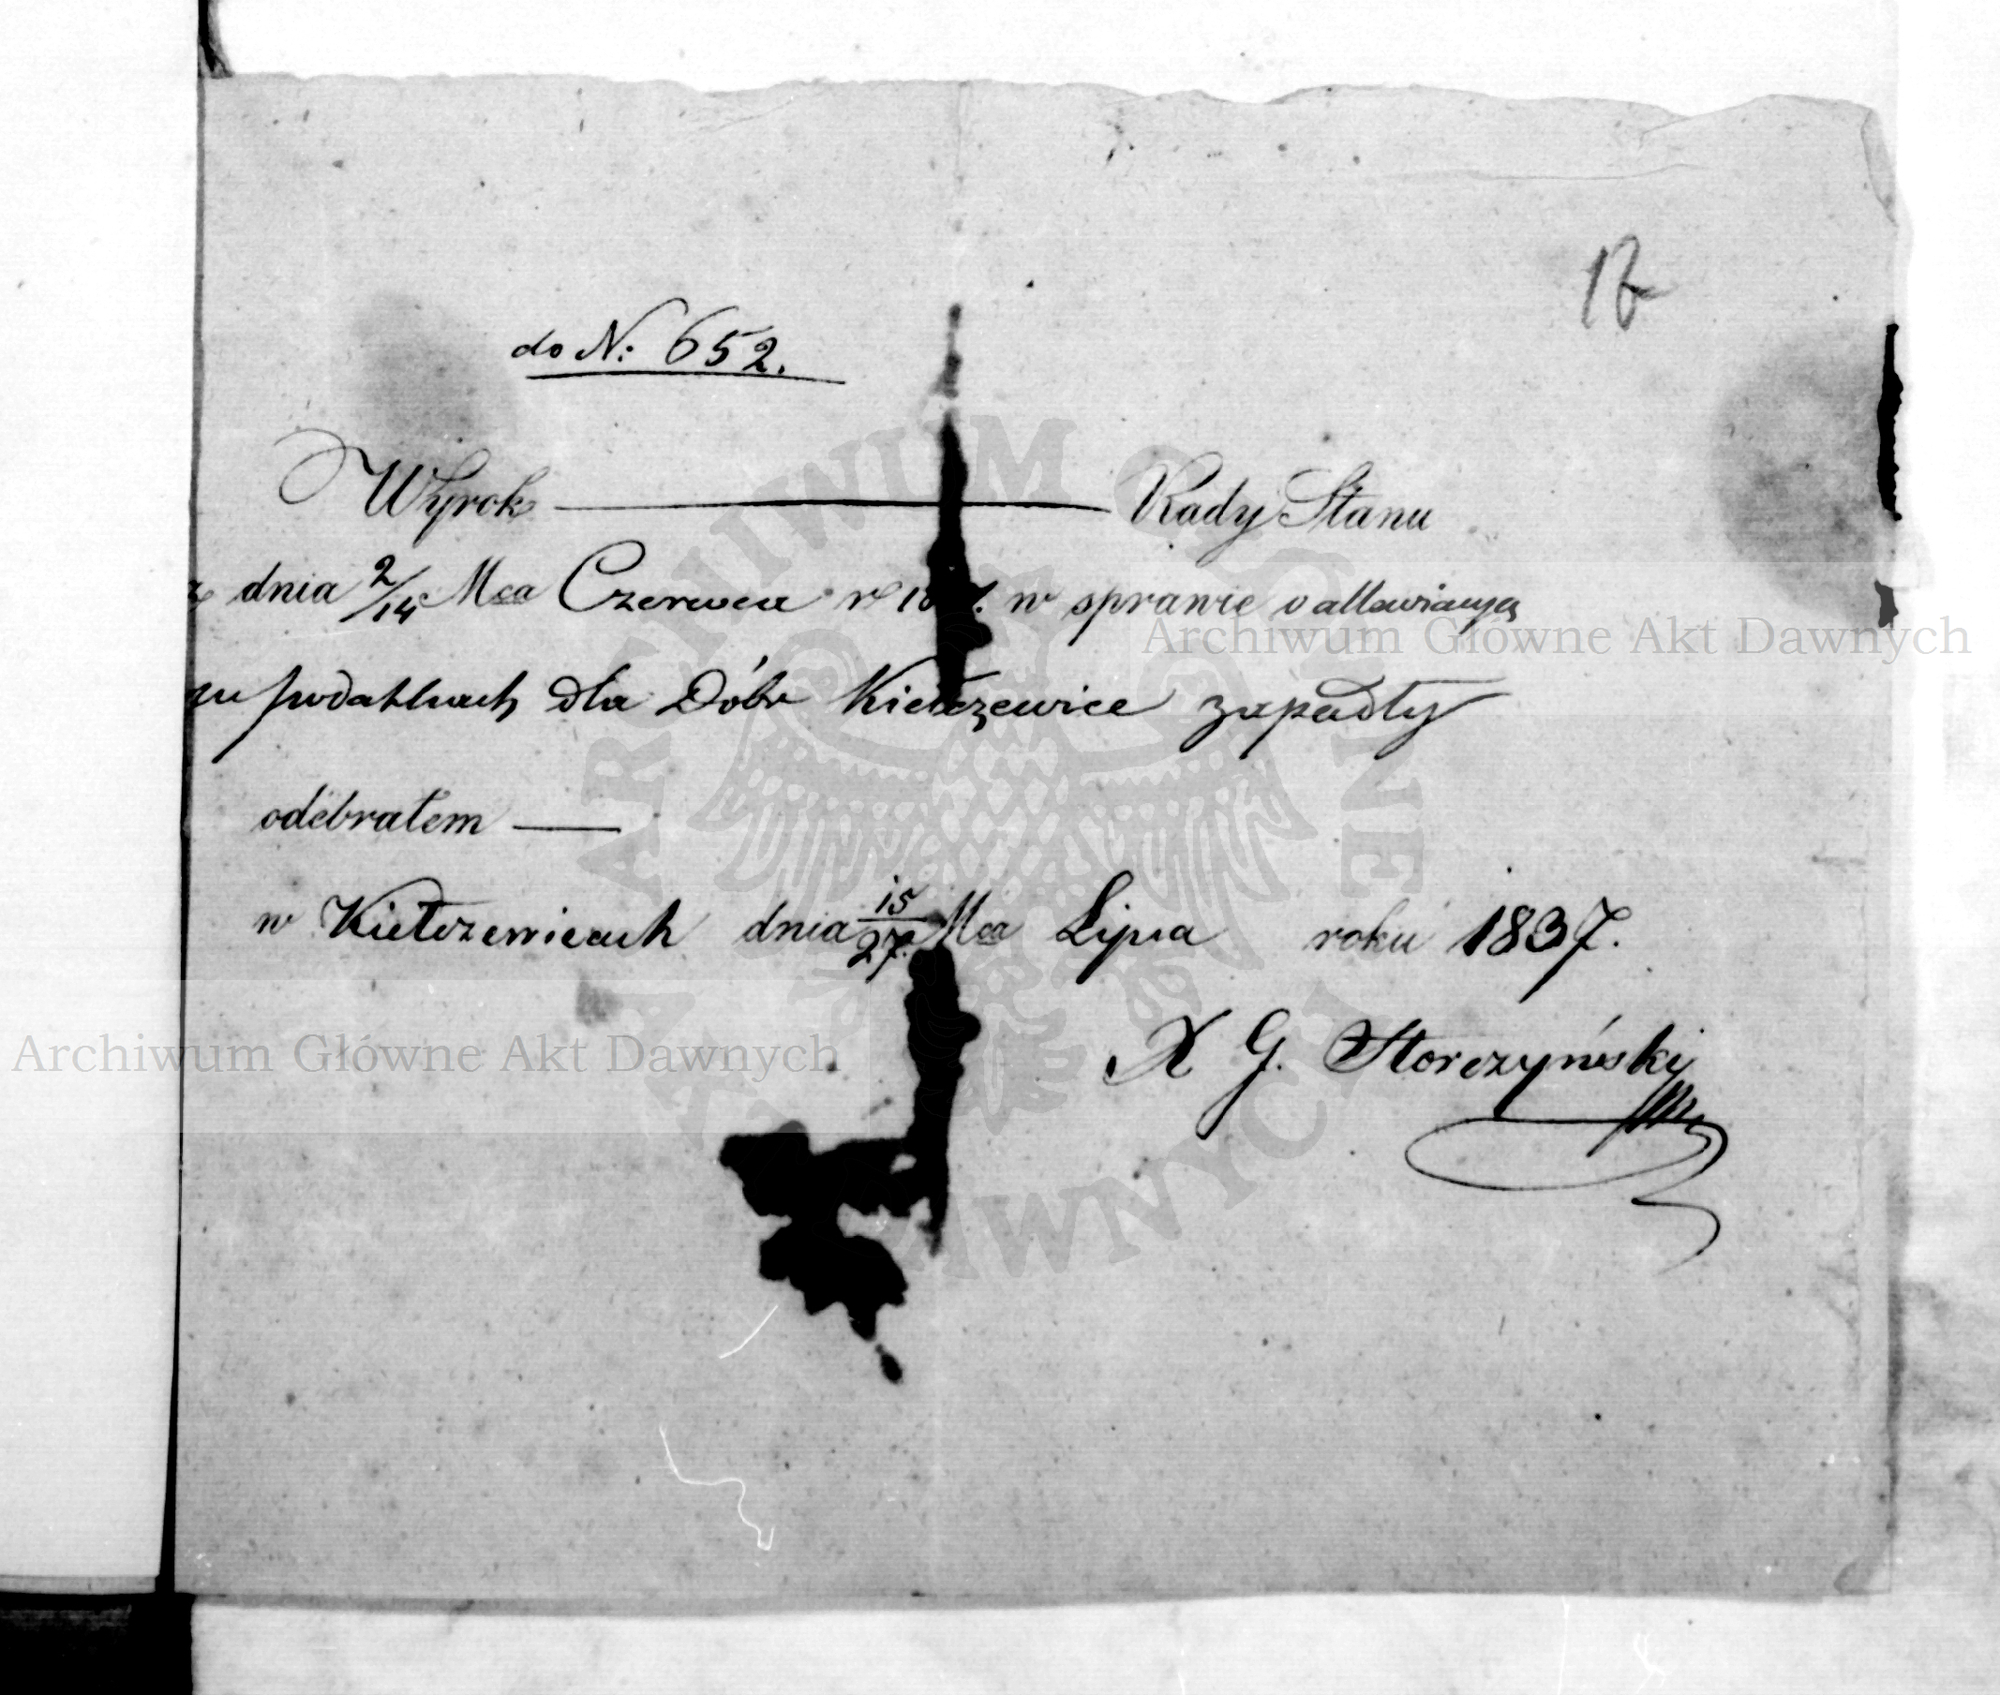 17
do N: 652.
Wyrok — Rady Stanu
z dnia 2/14 Mca Czerwca r 18 7. w sprawie o
podatkach dla Dóbr Kiełczewice zapadły
odebrałem —
w Kiełczewicach dnia 15/27. Mca Lipca roku 1837.
X G. Storczyński
Archiwum Główne Akt Dawnych
Archiwum Główne Akt Dawnych
ARCHIWUM GŁÓWNE AKT DAWNYCH